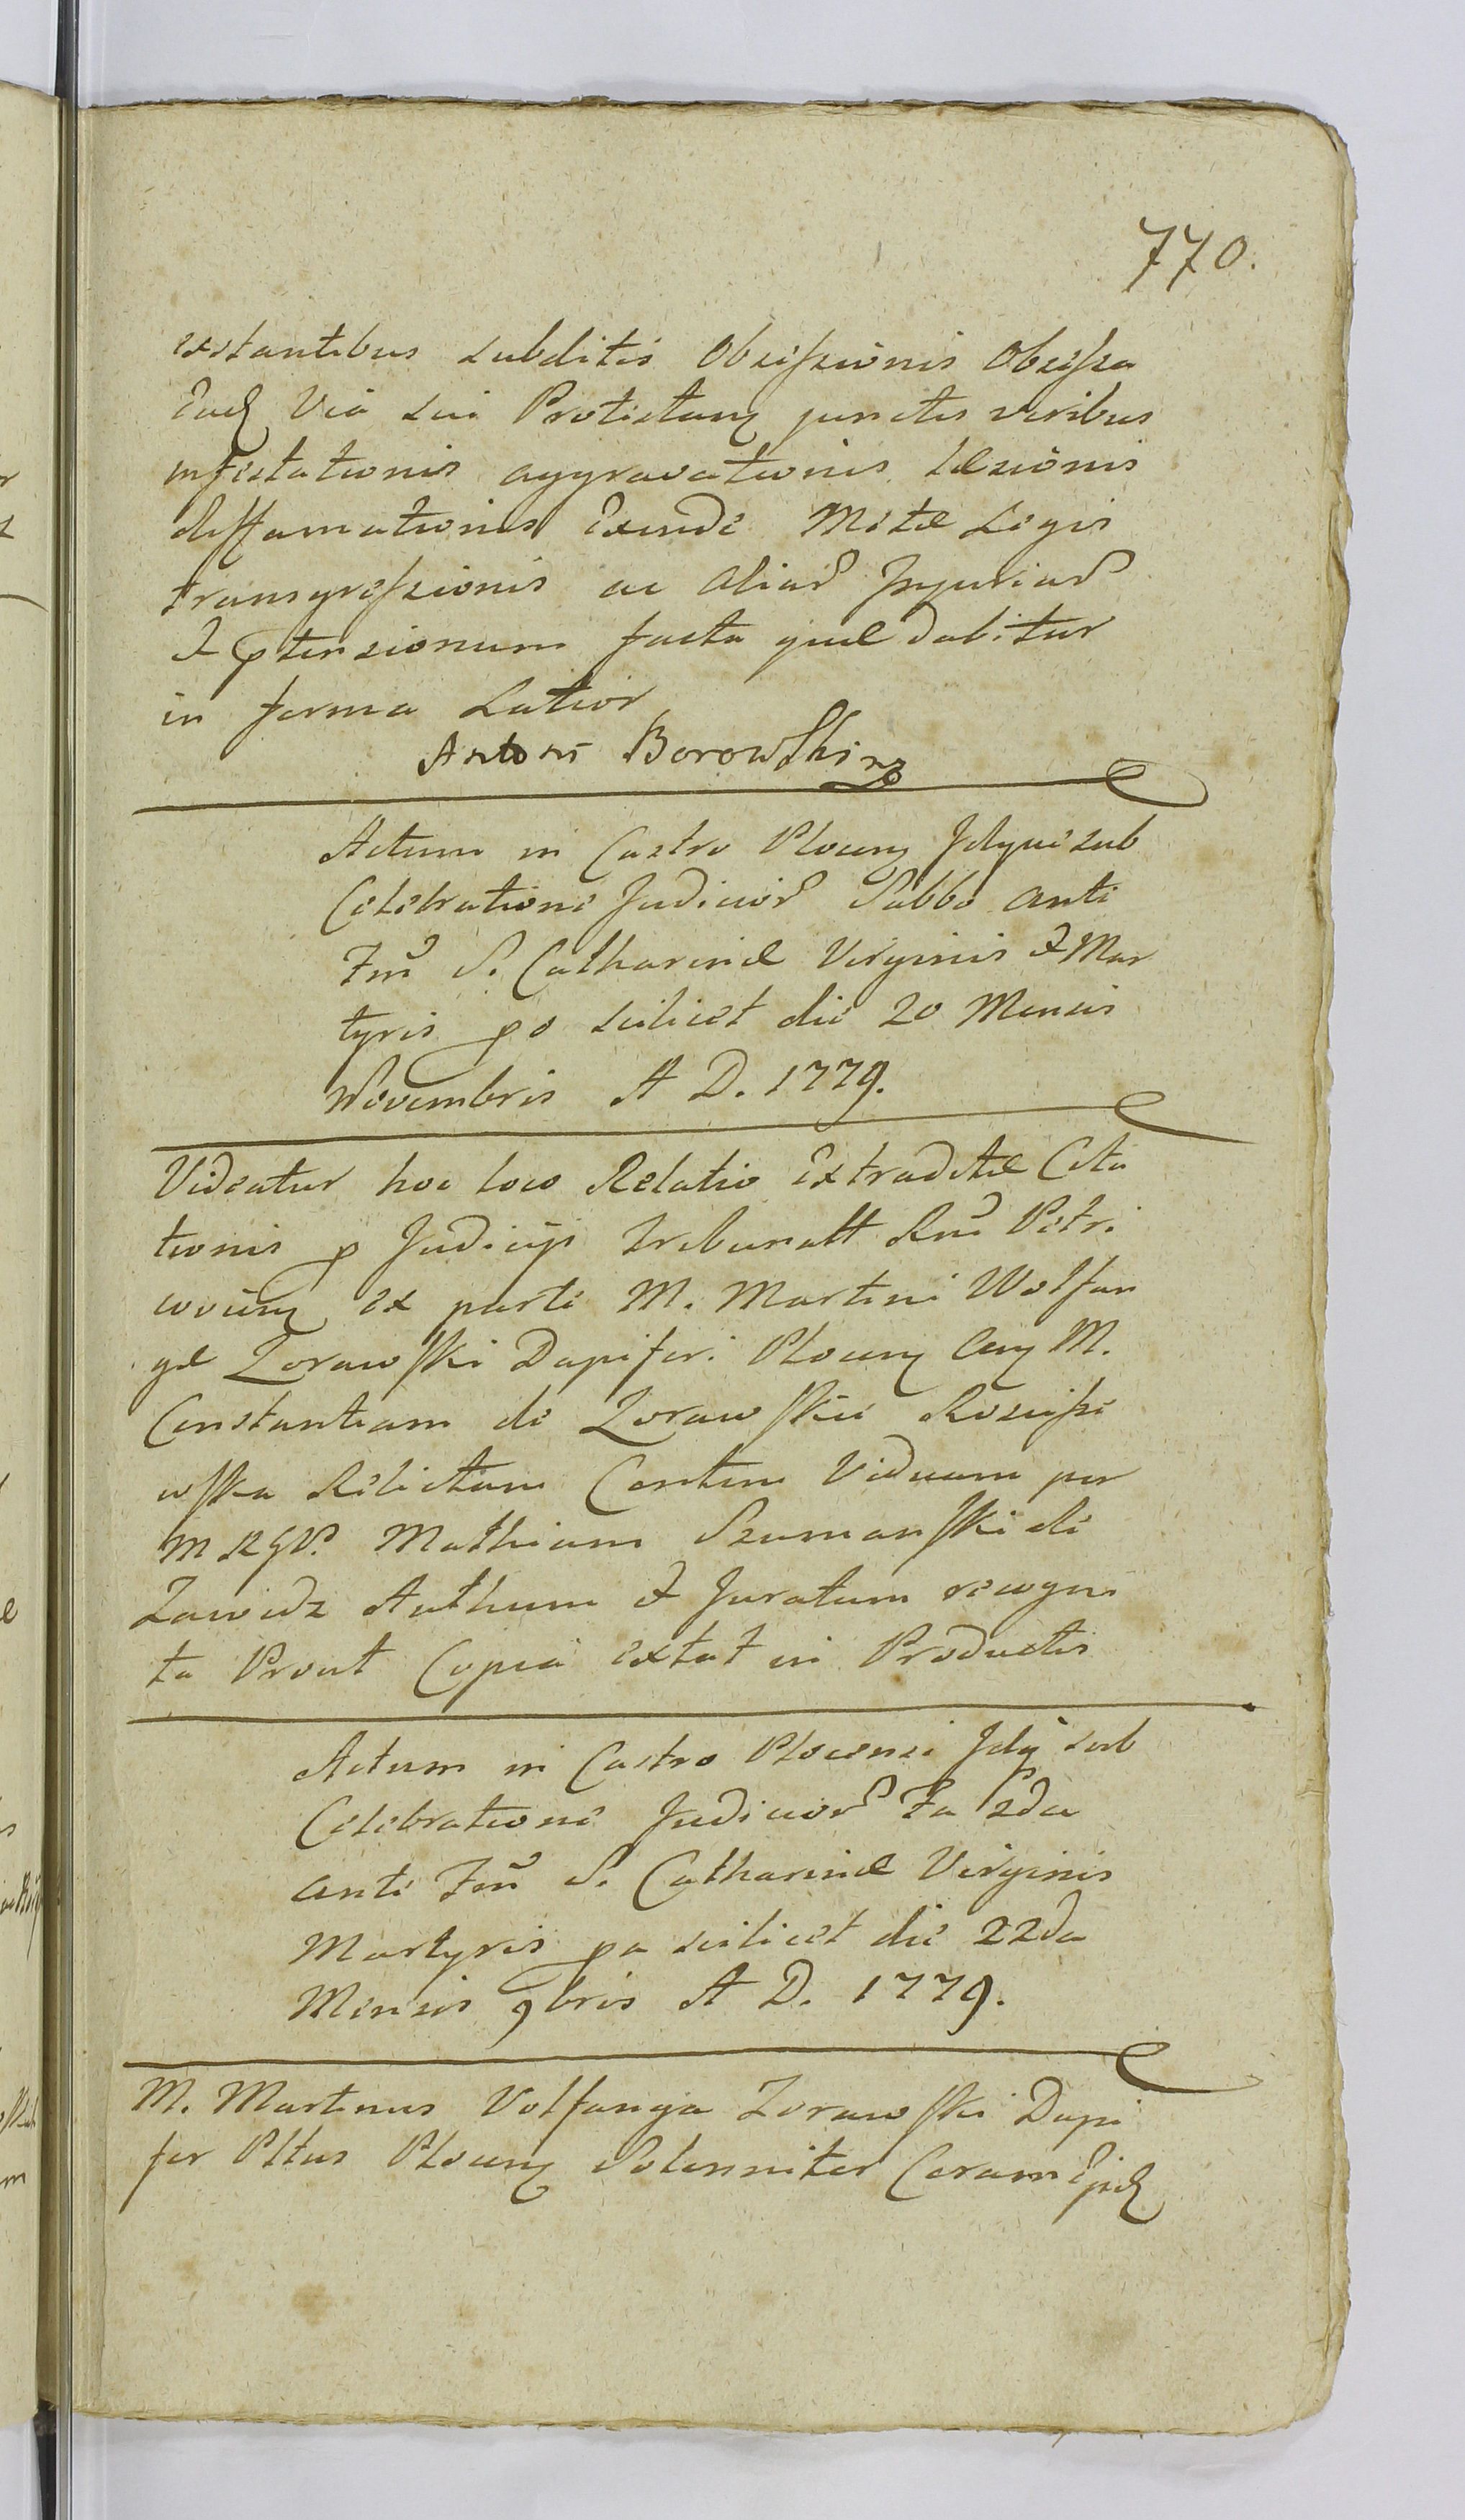 770.
extantibus subditis Obseſsionis Obseſsa
Eadq Via sui Protestanq junctis viribus
infestationis aggravationis lesionis
diffamationis Exinde Metæ Legis
transgreſsionis ac aliar Injuriar
& ptensionum facta quæ dabitur
in forma Latior
Antoni Borowski
Actum in Castro Plocenq Idque sub
Celebratione Judicior Sabbo ante
Fm S. Catharinæ Virginis & Mar
tyris po scilicet die 20 Mensis
Novembris A D. 1779.
Videatur hoc loco Relatio Extraditæ Cita
tionis p Judicijs Tribunalt Rni Petri
coviens ex parte M. Martini Wolfan
gæ Zorawski Dapiferi Plocenq M.
Constantiam de Zorawskie Rosciſze
wska Relictam Contem Viduam per
Mathiam Szumanski de
Zawidz Authum & Juratum recogni
ta Prout Copia extat in Productis
Actum in Castro Plocensi Idq sub
Celebratione Judicior Fa 2da
ante Fm S. Catharinæ Virginis
Martyris pa scilicet die 22da
Mensis 9bris A D. 1779.
M. Martinus Volfanga Zorawski Dapi
fer Pltus Plocenq Solenniter Coram Ejsdq